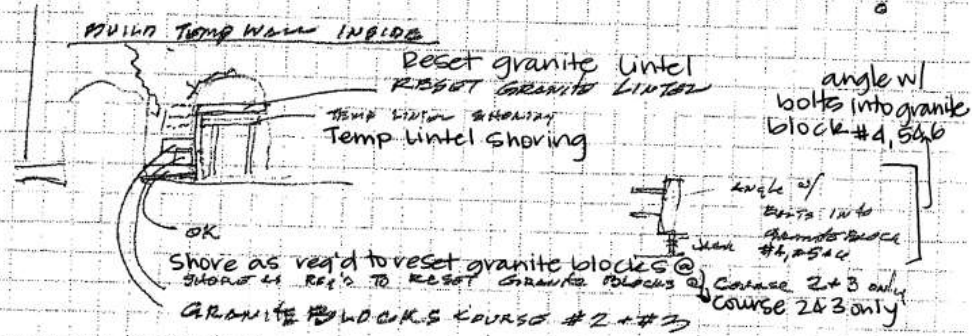 BUILD TEMP WALL INSIDE
Reset granite lintel
RESET GRANITE LINTEL
TEMP LINTEL SHORING
Temp Lintel Shoring
angle w/
bolts into granite
block #4, 5&6
ANGLE w/
BOLTS INTO
GRANITE BLOCK
#4, #5&6
OK
Shore as req'd to reset granite blocks @
SHORE AS REQ'D TO RESET GRANITE BLOCKS @ COURSE 2+3 only
course 2&3 only
GRANITE BLOCKS COURSE #2 + #3